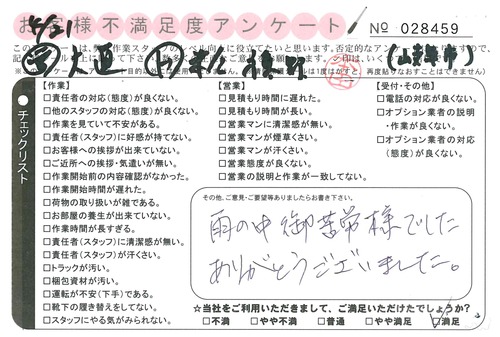 お客様不満足度アンケート
№ 028459
チェックリスト
【作業】
□責任者の対応(態度)が良くない。
□他のスタッフの対応(態度)が良くない。
□作業を見ていて不安がある。
□責任者(スタッフ)に好感が持てない。
□お客様への挨拶が出来ていない。
□ご近所への挨拶・気遣いが無い。
□作業開始前の内容確認がなかった。
□作業開始時間が遅れた。
□荷物の取り扱いが雑である。
□お部屋の養生が出来ていない。
□作業時間が長すぎる。
□責任者(スタッフ)に清潔感が無い。
□責任者(スタッフ)が汗くさい。
□トラックが汚い。
□梱包資材が汚い。
□運転が不安(下手)である。
□靴下の履き替えをしてない。
□スタッフにやる気がみられない。
【営業】
□見積もり時間に遅れた。
□見積もり時間が長い。
□営業マンに清潔感が無い。
□営業マンが煙草くさい。
□営業マンが汗くさい。
□営業態度が良くない。
□営業の説明と作業が一致してない。
【受付・その他】
□電話の対応が良くない。
□オプション業者の説明・作業が良くない。
□オプション業者の対応(態度)が良くない。
その他、ご意見・ご要望等ありましたらお書き下さい。
雨の中御苦労様でした
ありがとうございました。
☆当社をご利用いただきまして、ご満足いただけたでしょうか?
□不満 □やや不満 □普通 □やや満足 □満足